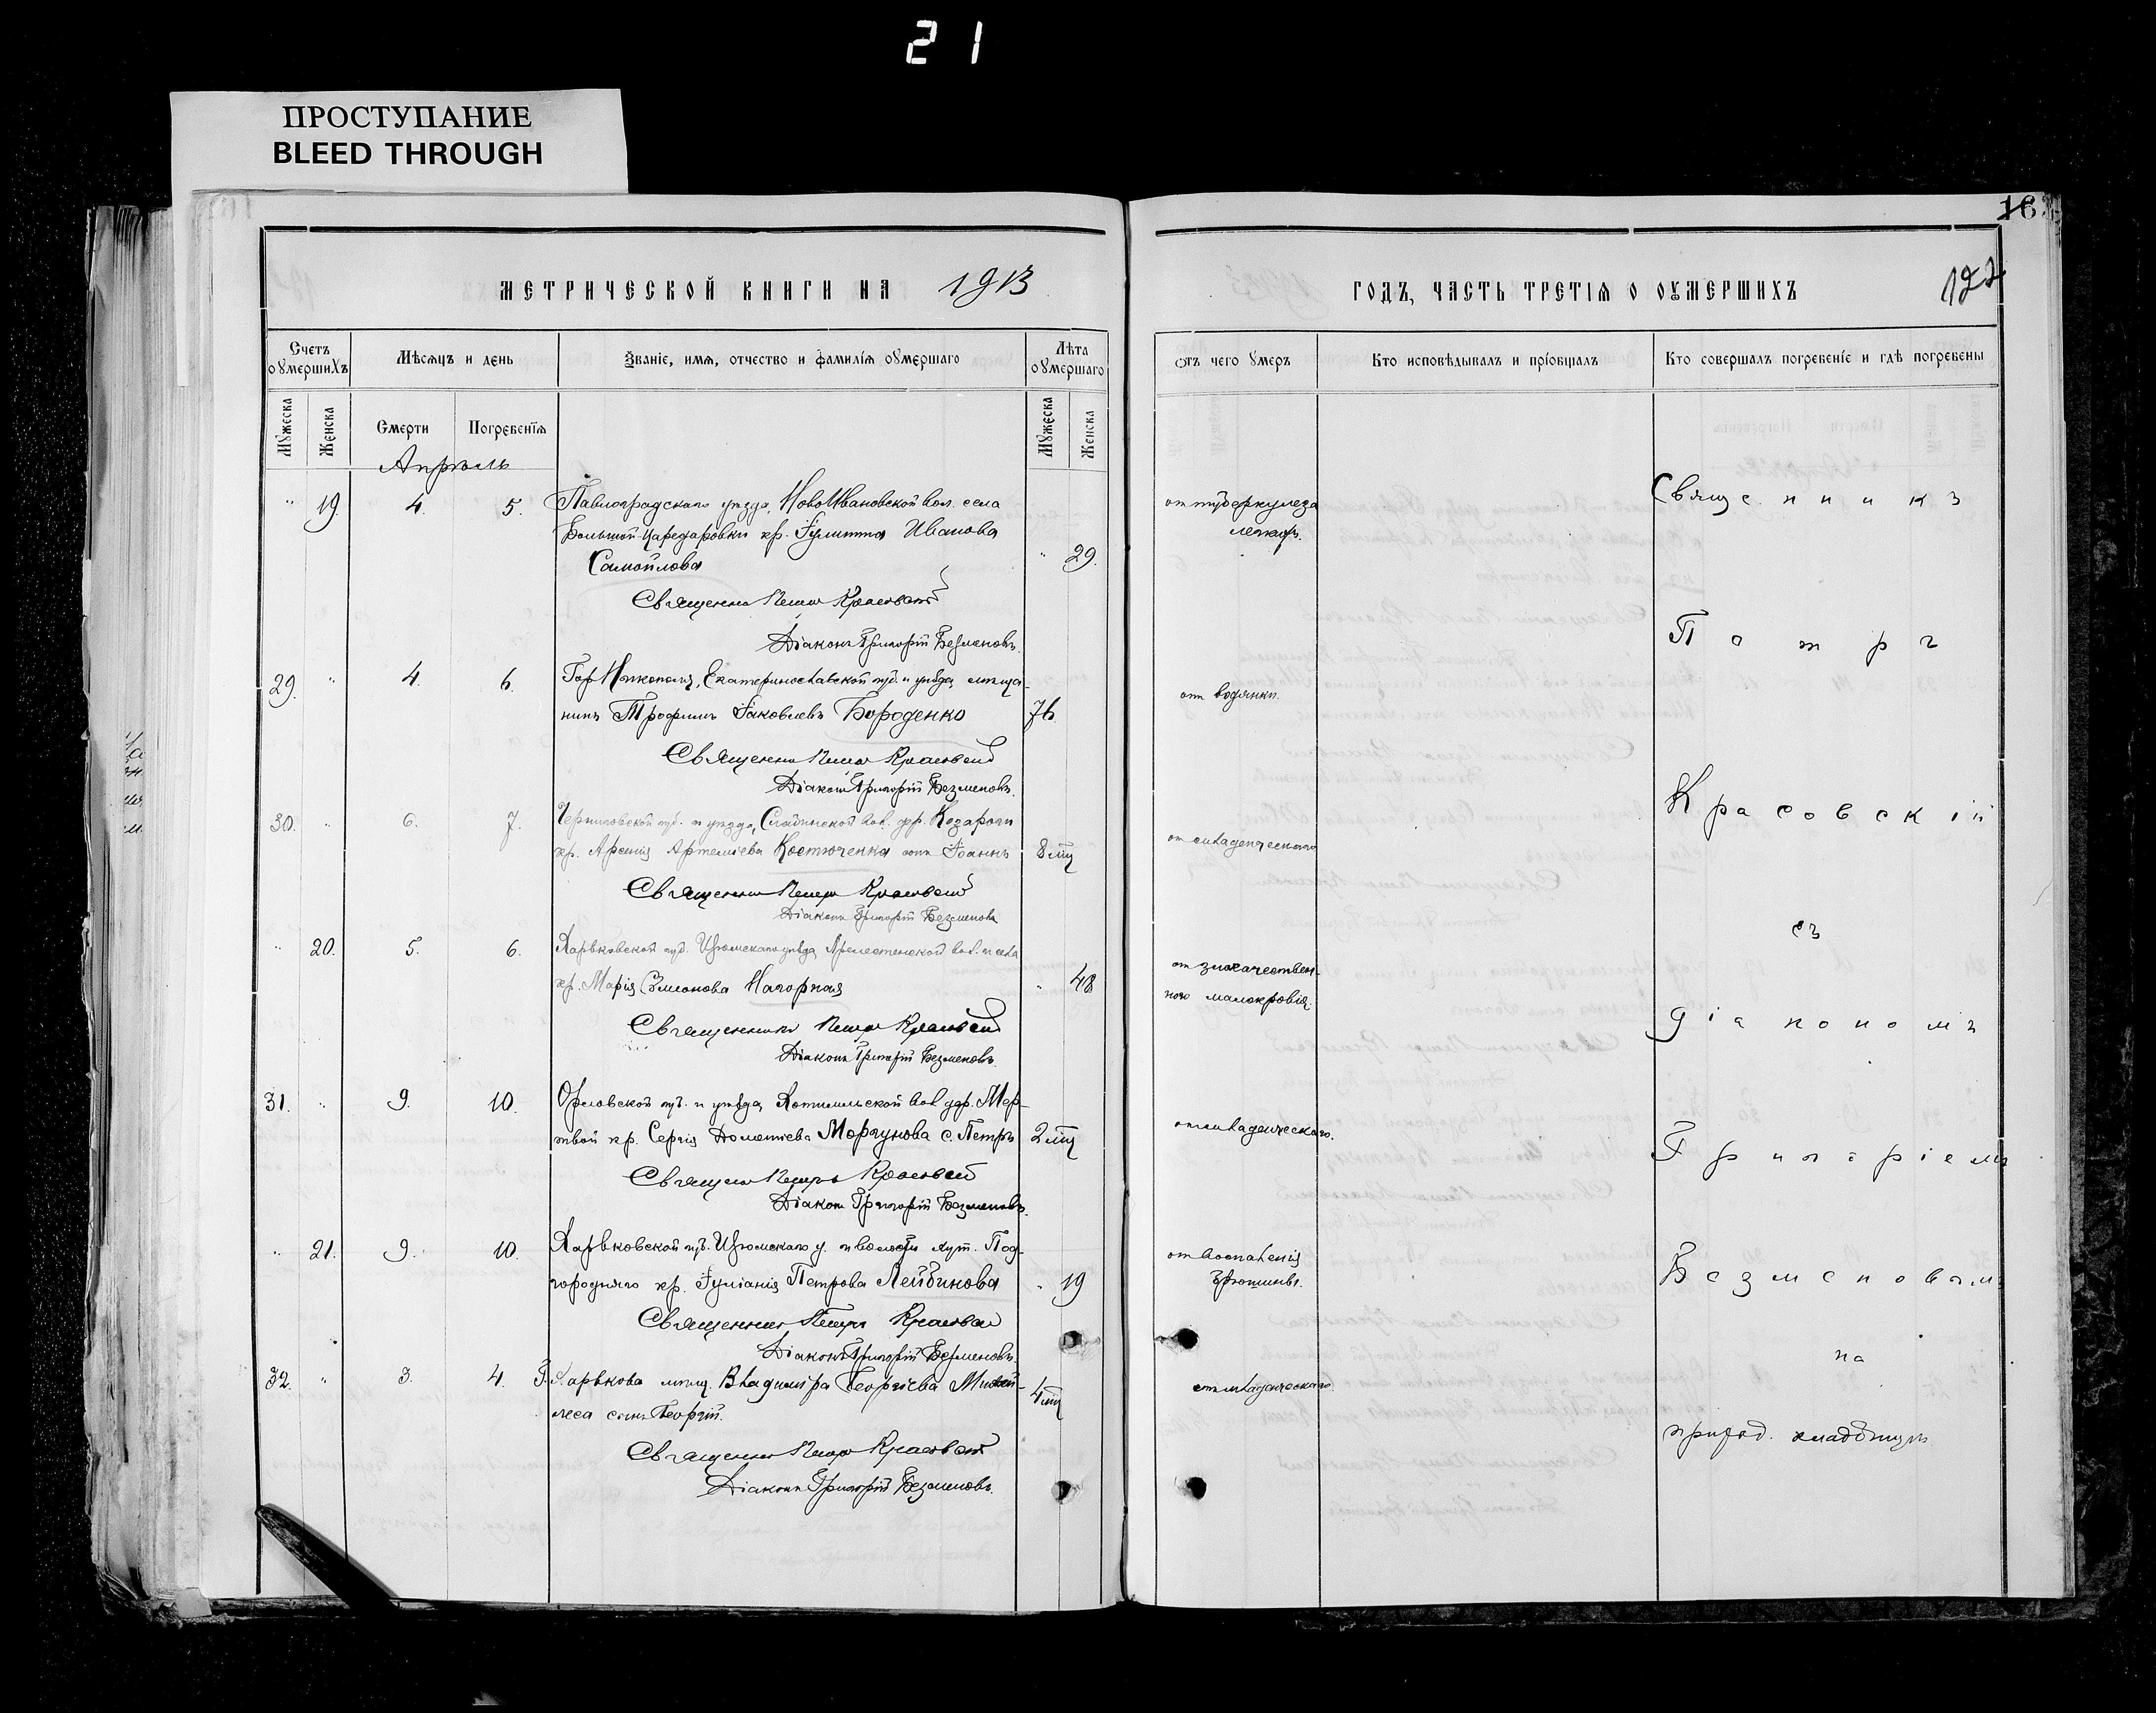 21
ПРОСТУПАНИЕ
BLEED THROUGH
16
МЕТРИЧЕСКОЙ КНИГИ НА 1913
ГОДЪ, ЧАСТЬ ТРЕТІЯ О ОУМЕРШИХЪ
Счетъ оумершихъ
Мѣсяцъ и день
Званіе, имя, отчество и фамилія оумершаго
Лѣта оумершаго
отъ чего умеръ
Кто исповѣдывалъ и пріобщалъ
Кто совершалъ погребеніе и гдѣ погребены
Мужеска
Женска
Смерти
Погребенія
Мужеска
Женска
Апрѣль
" 19. 4. 5. Павлоградскаго уѣзда, НовоИвановской вол. села
кр. Іулитта Иванова
Самойлова
" 29.
от туберкулеза
легкихъ.
Священникъ Петръ Красовскій
Діаконъ Григорій Безменовъ.
29. " 4. 6. Гор Никополя, Екатеринославской губ. и уѣзда, мѣща-
нинъ Трофимъ Іаковлевъ Бороденко
76
отъ водянки.
Священникъ Петръ Красовскій
Діаконъ Григорій Безменовъ.
30. " 6. 7. Черниговской губ. и уѣзда, вол. дер. Козароги
кр. Арсенія Артеміева Костюченка сынъ Іоаннъ
8 мѣц
от младенческаго
Священникъ Петръ Красовскій
Діаконъ Григорій Безменовъ
" 20. 5. 6. Харьковской губ. Изюмскаго уѣзда, вол. и села
кр. Марія Симонова Нагорная
" 48
от злокачествен-
наго малокровія.
Священникъ Петръ Красовскій
Діаконъ Григорій Безменовъ.
31. " 9. 10. Орловской губ. и уѣзда, вол дер. Мер-
твой кр. Сергія Дометіева Моргунова с. Петръ
2 мѣц
от младенческаго.
Священникъ Петръ Красовскій
Діаконъ Григорій Безменовъ.
" 21. 9. 10. Харьковской губ. Изюмскаго у. и волости хут. Под-
городняго кр. Іуліанія Петрова Лейбинова
" 19
от воспаленія
брюшины.
Священникъ Петръ Красовскій
Діаконъ Григорій Безменовъ.
32. " 3. 4. Г. Харькова мѣщ. Владиміра Георгіева
сынъ Георгій.
4 мѣц
от младенческаго.
Священникъ Петръ Красовскій
Діаконъ Григорій Безменовъ.
Священникъ
Петръ
Красовскій
съ
діакономъ
Григоріемъ
Безменовым
на
приход. кладбищѣ